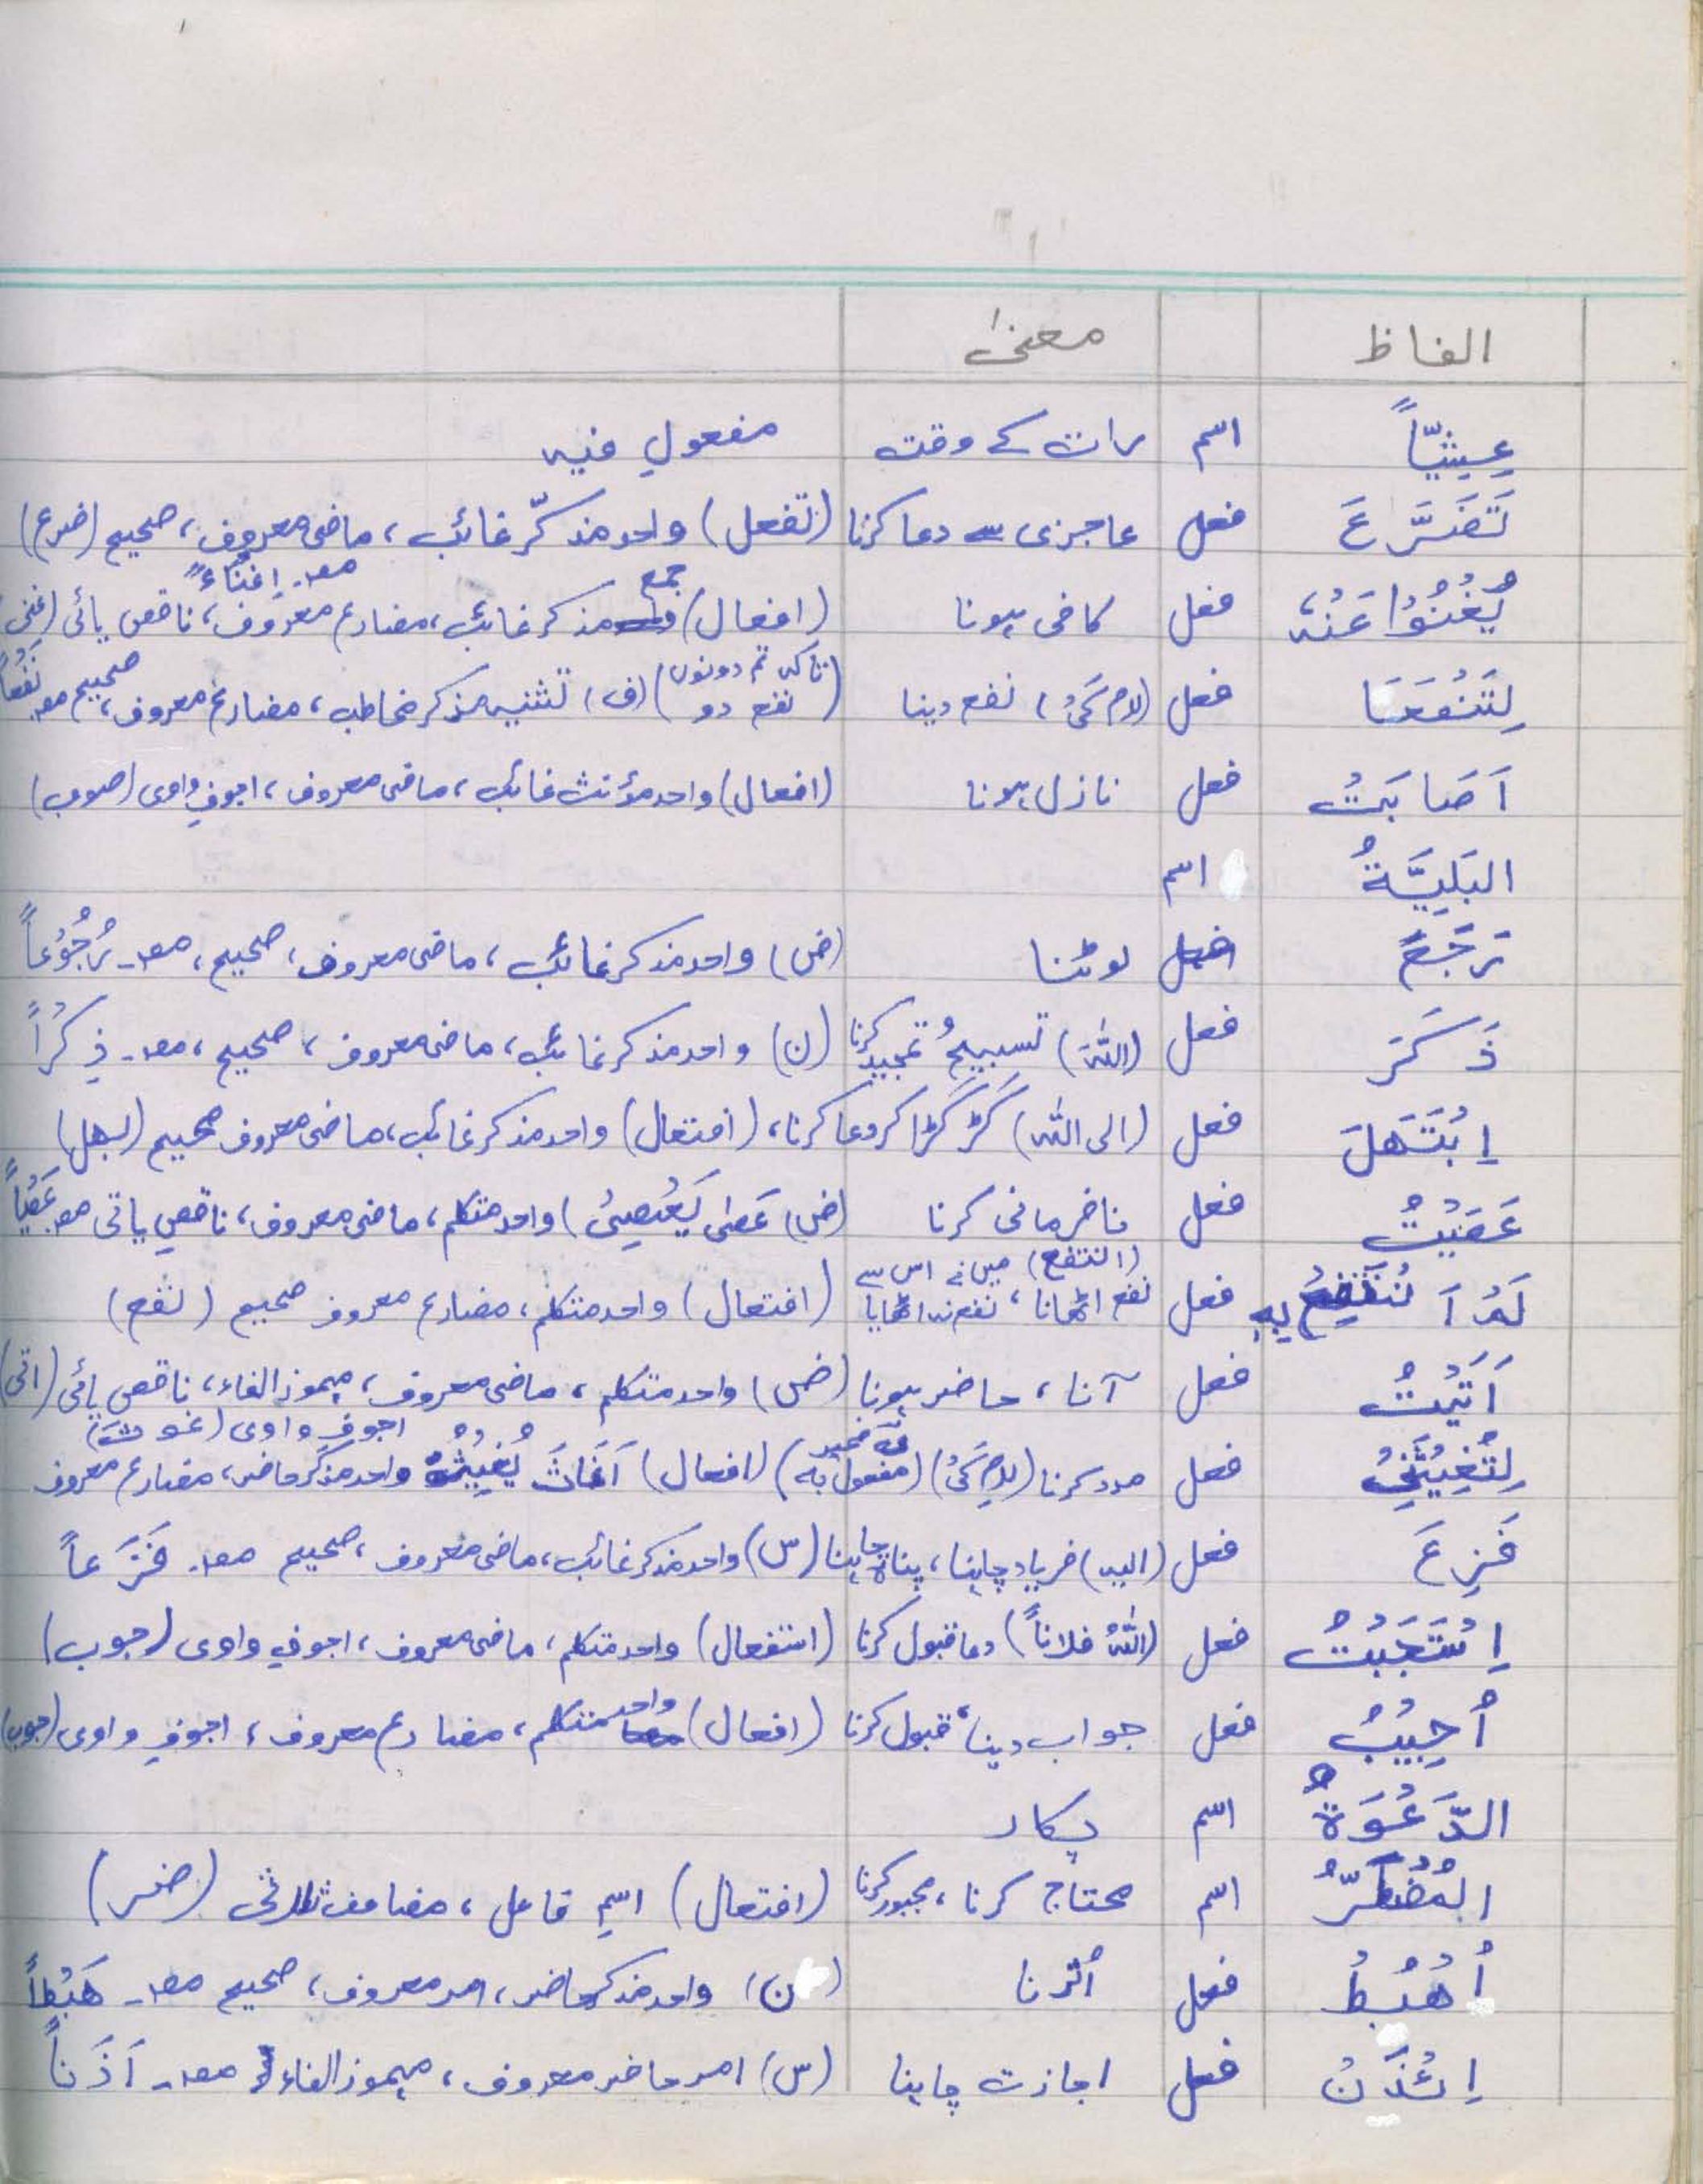 الفاظ معنیٰ
عِشِیّاً اسم رات کے وقت مفعولِ فیہ
تَضَرَّعَ فعل عاجزی سے دعا کرنا (تفعل) واحد مذکّر غائب، ماضی معروف، صحیح (ضرع)
یُغْنُوْا عَنْهُ فعل کافی ہونا (افعال) جمع مذکر غائب، مضارع معروف، ناقص یائی (غنی) مصد۔ اِغْنَاءً
لِتَنْفَعَا فعل (لامِ کَیْ) نفع دینا (تاکہ تم دونوں نفع دو) (ف) تثنیہ مذکر مخاطب، مضارع معروف، صحیح مصد نَفْعاً
اَصَابَتْ فعل نازل ہونا (افعال) واحد مؤنث غائب، ماضی معروف، اجوفِ واوی (صوب)
البَلِیَّةُ اسم
رَجَعَ فعل لوٹنا (ض) واحد مذکر غائب، ماضی معروف، صحیح، مصد۔ رُجُوْعاً
ذَکَرَ فعل (اللهَ) تسبیح و تمجید کرنا (ن) واحد مذکر غائب، ماضی معروف، صحیح، مصد۔ ذِکْراً
اِبْتَهَلَ فعل (الی الله) گڑگڑا کر دعا کرنا، (افتعال) واحد مذکر غائب، ماضی معروف صحیح (بهل)
عَصَیْتُ فعل نافرمانی کرنا (ض) عَصٰی یَعْصِیْ) واحد متکلم، ماضی معروف، ناقصِ یائی مصد عَصْیاً
لَمْ اَنْتَفِعْ بِهِ فعل (انتفع) نفع اٹھانا، میں نے اس سے نفع نہ اٹھایا (افتعال) واحد متکلم، مضارع معروف صحیح (نفع)
اَتَیْتُ فعل آنا، حاضر ہونا (ض) واحد متکلم، ماضی معروف، مہموز الفاء، ناقص یائی (اتی)
لِتُغِیْثَنِیْ فعل مدد کرنا (لامِ کَیْ) (یَ ضمیر مفعول بہ) (افعال) اَغَاثَ یُغِیْثُ واحد مذکر حاضر، مضارع معروف اجوفِ واوی (غوث)
فَزِعَ فعل (الیه) فریاد چاہنا، پناہ چاہنا (س) واحد مذکر غائب، ماضی معروف، صحیح مصد۔ فَزَعاً
اِسْتَجَبْتُ فعل (اللهُ فلاناً) دعا قبول کرنا (استفعال) واحد متکلم، ماضی معروف، اجوفِ واوی (جوب)
اُجِیْبُ فعل جواب دینا، قبول کرنا (افعال) واحد متکلم، مضارع معروف، اجوفِ واوی (جوب)
الدَّعْوَةُ اسم پکار
المُضْطَرُّ اسم محتاج کرنا، مجبور کرنا (افتعال) اسمِ فاعل، مضاعف ثلاثی (ضر)
اُهْبُطْ فعل اُترنا (ن) واحد مذکر حاضر، امر معروف، صحیح مصد۔ هَبْطاً
اِئْذَنْ فعل اجازت چاہنا (س) امر حاضر معروف، مہموز الفاء مصد۔ اَذَناً